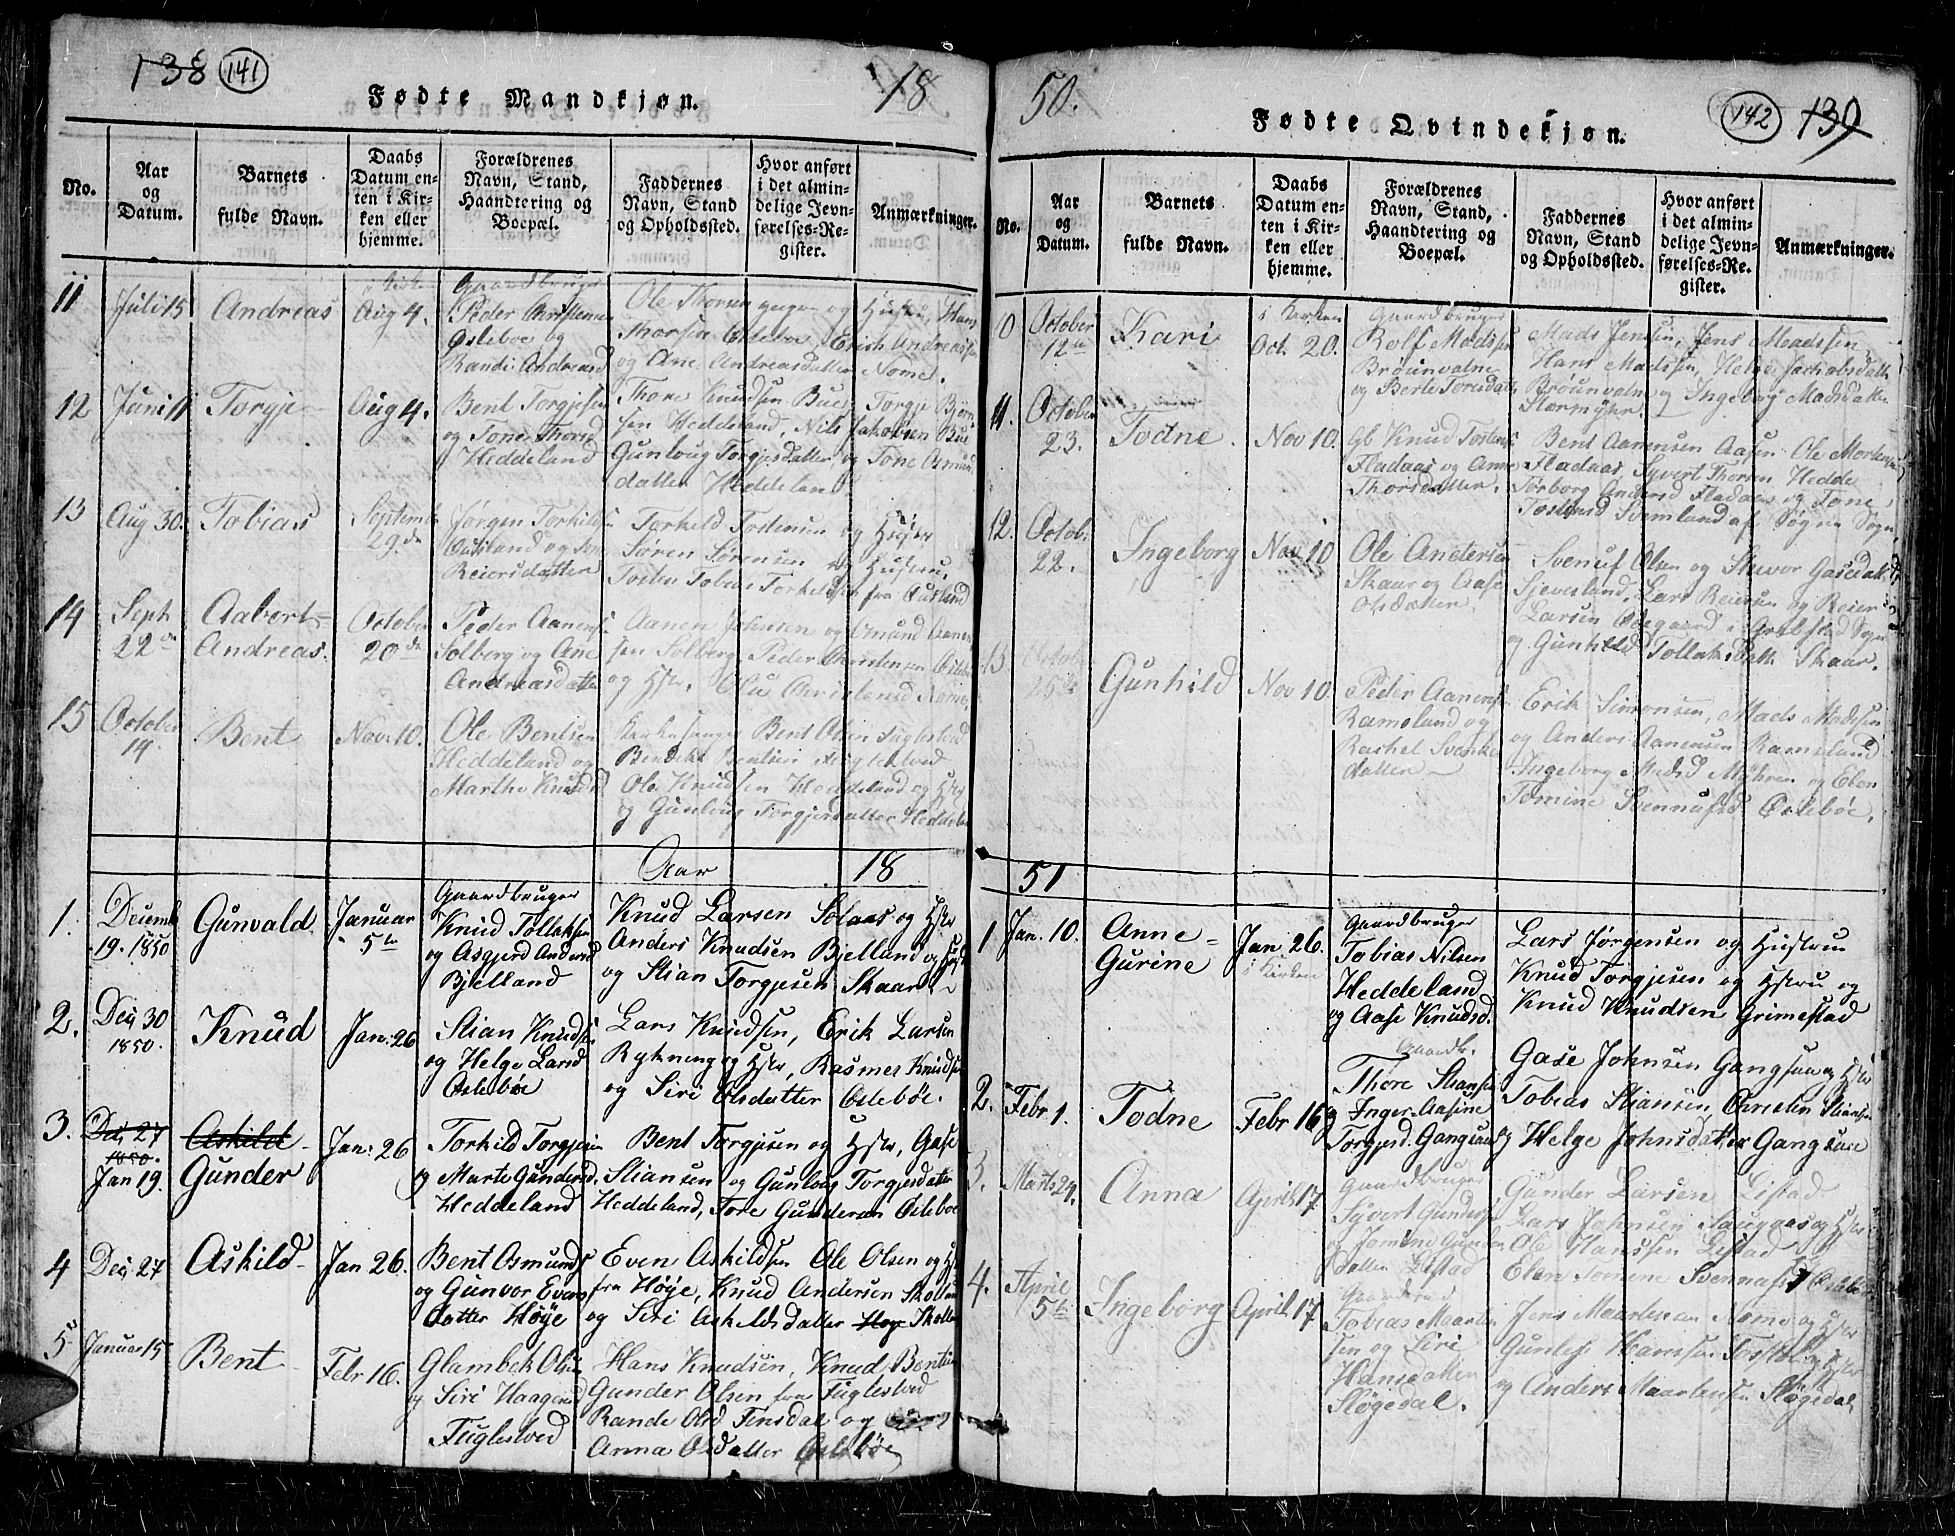 138 141
Fødte Mandkjøn.
18
No.
Aar
og
Datum.
Barnets
fulde Navn.
Daabs
Datum en-
ten i Kir-
ken eller
hjemme.
Forældrenes
Navn, Stand,
Haandtering og
Boepæl.
Faddernes
Navn, Stand
og Opholdssted.
Hvor anført
i det almin-
delige Jevn-
førelses-Re-
gister.
Anmærkninger.
11
Juli 15
Andreas
Aug 4.
Gaardbruger
Peder Christensen
Osleboe og
Randi Andreasd
Ole Thorsen
og Hustru, Hans
Thorsen Osleboe Erich Andreassen
og Ane Andreasdatter Nome.
12
Juni 11
Torgje
Aug 4.
Bent Torgjesen
og Tone Thorsd
Heddeland
Thore Knudsen Bue, Torgje Bjørn
sen Heddeland, Nils Jakobsen Bue
Gunloug Torgjesdatter og Tone Osmun
datter Heddeland.
13
Aug 30.
Tobias
Septemb
29de
Jørgen Torkilds
Ousland og
Reiersdatter
Torkeld Tostensen og Hustru
Søren Sørensen og Hustru.
Tosten Tobias Torkeldsen fra Ousland
14
Sept
22de
Aabert=
Andreas.
October
20de
Peder Aanens
Solberg og Ane
Andreasdatter
Aanen Johnsen og Omund Aanen
sen Solberg. Peder Christensen Osleboe
og Hstr. Olu Christensd Nome.
15
October
14.
Bent
Nov. 10.
Ole Bentsen
Heddeland og
Marthe Knudsd
Kirkesanger Bent Olsen Fuglestved
Bendikt Bentsen Fuglestved
Ole Knudsen Heddeland og Hstr
og Gunloug Torgjersdatter Heddeland
Aar 18
1.
Decemb
19. 1850
Gunvald
Januar
5te
Gaardbruger
Knud Tollaksen
og Asgjerd Andersd
Bjelland
Knud Larsen Solaas og Hstr
Anders Knudsen Bjelland og Hustr
og Stian Torgjesen Skaar
2.
Dec 30
1850.
Knud
Jan. 26
Stian Knudsen
og Helge Larsd
Oslebøe
Lars Knudsen, Erik Larsen
Rykning og Hstr, Rasmus Knudsen
og Siri Olsdatter Oslebøe.
3.
Dec 27
1850.
Jan 19.
Askild
Gunder
Jan. 26
Torkild Torgjesen
og Marte Gundersd
Heddeland
Bent Torgjesen og Hstr, Gase
Stiansen og Gunloug Torgjesdatter
Heddeland, Tore Gundersen Osleboe
4
Dec 27
Askild
Jan 26.
Bent Osmunds
og Gunvor Evens
datter Høye
Even Askildsen Ole Olsen og Hst
fra Høye, Knud Andersen Skolland
og Siri Askildsdatter Høye Skolland
5
Januar 15
Bent
Febr 16.
Glambek Olsen
og Siri Haagensd
Fuglestved
Hans Knudsen, Knud Bentsen
Gunder Olsen fra Fuglestved
Rande Olsd Finsdal og
Anna Olsdatter Oslebøe
50.
Fødte Qvindekjøn.
142 139
No.
Aar
og
Datum.
Barnets
fulde Navn.
Daabs
Datum en-
ten i Kir-
ken eller
hjemme.
Forældrenes
Navn, Stand,
Haandtering og
Boepæl.
Faddernes
Navn, Stand
og Opholdssted.
Hvor anført
i det almin-
delige Jevn-
førelses-Re-
gister.
Anmærkninger.
10
October
12te
Kari
i Kirken
Oct. 20.
Gaardbruger
Rolf Madsen
Brøunvalne
og Berte Torsdatt
Mads Jensen, Jens Madssen
Hans Madsen, Helge Jachobsdatt
Brøunvaln og Ingeborg Madsdatter
Stormyhr.
11.
October
23.
Todne.
Nov 10.
Gb Knud Tostens
Fladaas og Anne
Thorsdatter.
Bent Aanensen Aasen Ole Mortensen
Fladaas, Syvert Thorsen Hedde
Torborg Andersd Fladaas og Tone
Tostensd Svemland af Søgne Sogn.
12.
Octob.
22.
Ingeborg
Nov 10
Ole Andersen
Skaar og Aase
Olsdatter.
Svenuf Olsen og Skevor Gasedatt
Sjevesland. Lars Reiersen og Reier
Larsen Ødegaard i Greipstad Sogn
og Gunhild Tollaksdatt Skaar.
13
Octob
25de
Gunhild
Nov 10.
Peder Aanensen
Rameland og
Rachel Svenke
datter
Erik Simonsen, Mads Madsen
og Anders Aanensen Rameland
Ingeborg Madsd Myhren og Elen
Tomine Svennufsd Oslebøe.
51
1
Jan. 10.
Anne=
Gurine
Jan. 26.
i Kirken
Gaardbruger
Tobias Nilsen
Heddeland
og Aase Knudsd.
Lars Jørgensen og Hustru
Knud Torgjesen og Hstru og
Knud Knudsen Grimestad
2.
Febr 1.
Todne
Febr 16
Gaardb.
Thore Stiansen
Inger Aasine
Torgjersd. Gangsaas
Gase Johnsen Gangsaa og Hstr
Tobias Stiansen, Christen Stiansen
og Helge Johnsdatter Gangsaae
3.
Marts 24.
Anna
April 17
Gaardbruger
Syvert Gunders
og Jomine Gunder
datter Leistad
Gunder Larsen Leistad
Lars Johnsen Haugaas og Hstr
Ole Hanssen Leistad
Elen Tomine Svennufsd Osleboe
4.
April
5te
Ingeborg
April 17
Gaardbrud
Tobias Maarten
sen og Siri
Hansdatter
Sløgedal.
Jens Maartensen Nome og Hstr
Gunlef Hansen Tofstad og Hstr
og Anders Maartensen Sløgedal